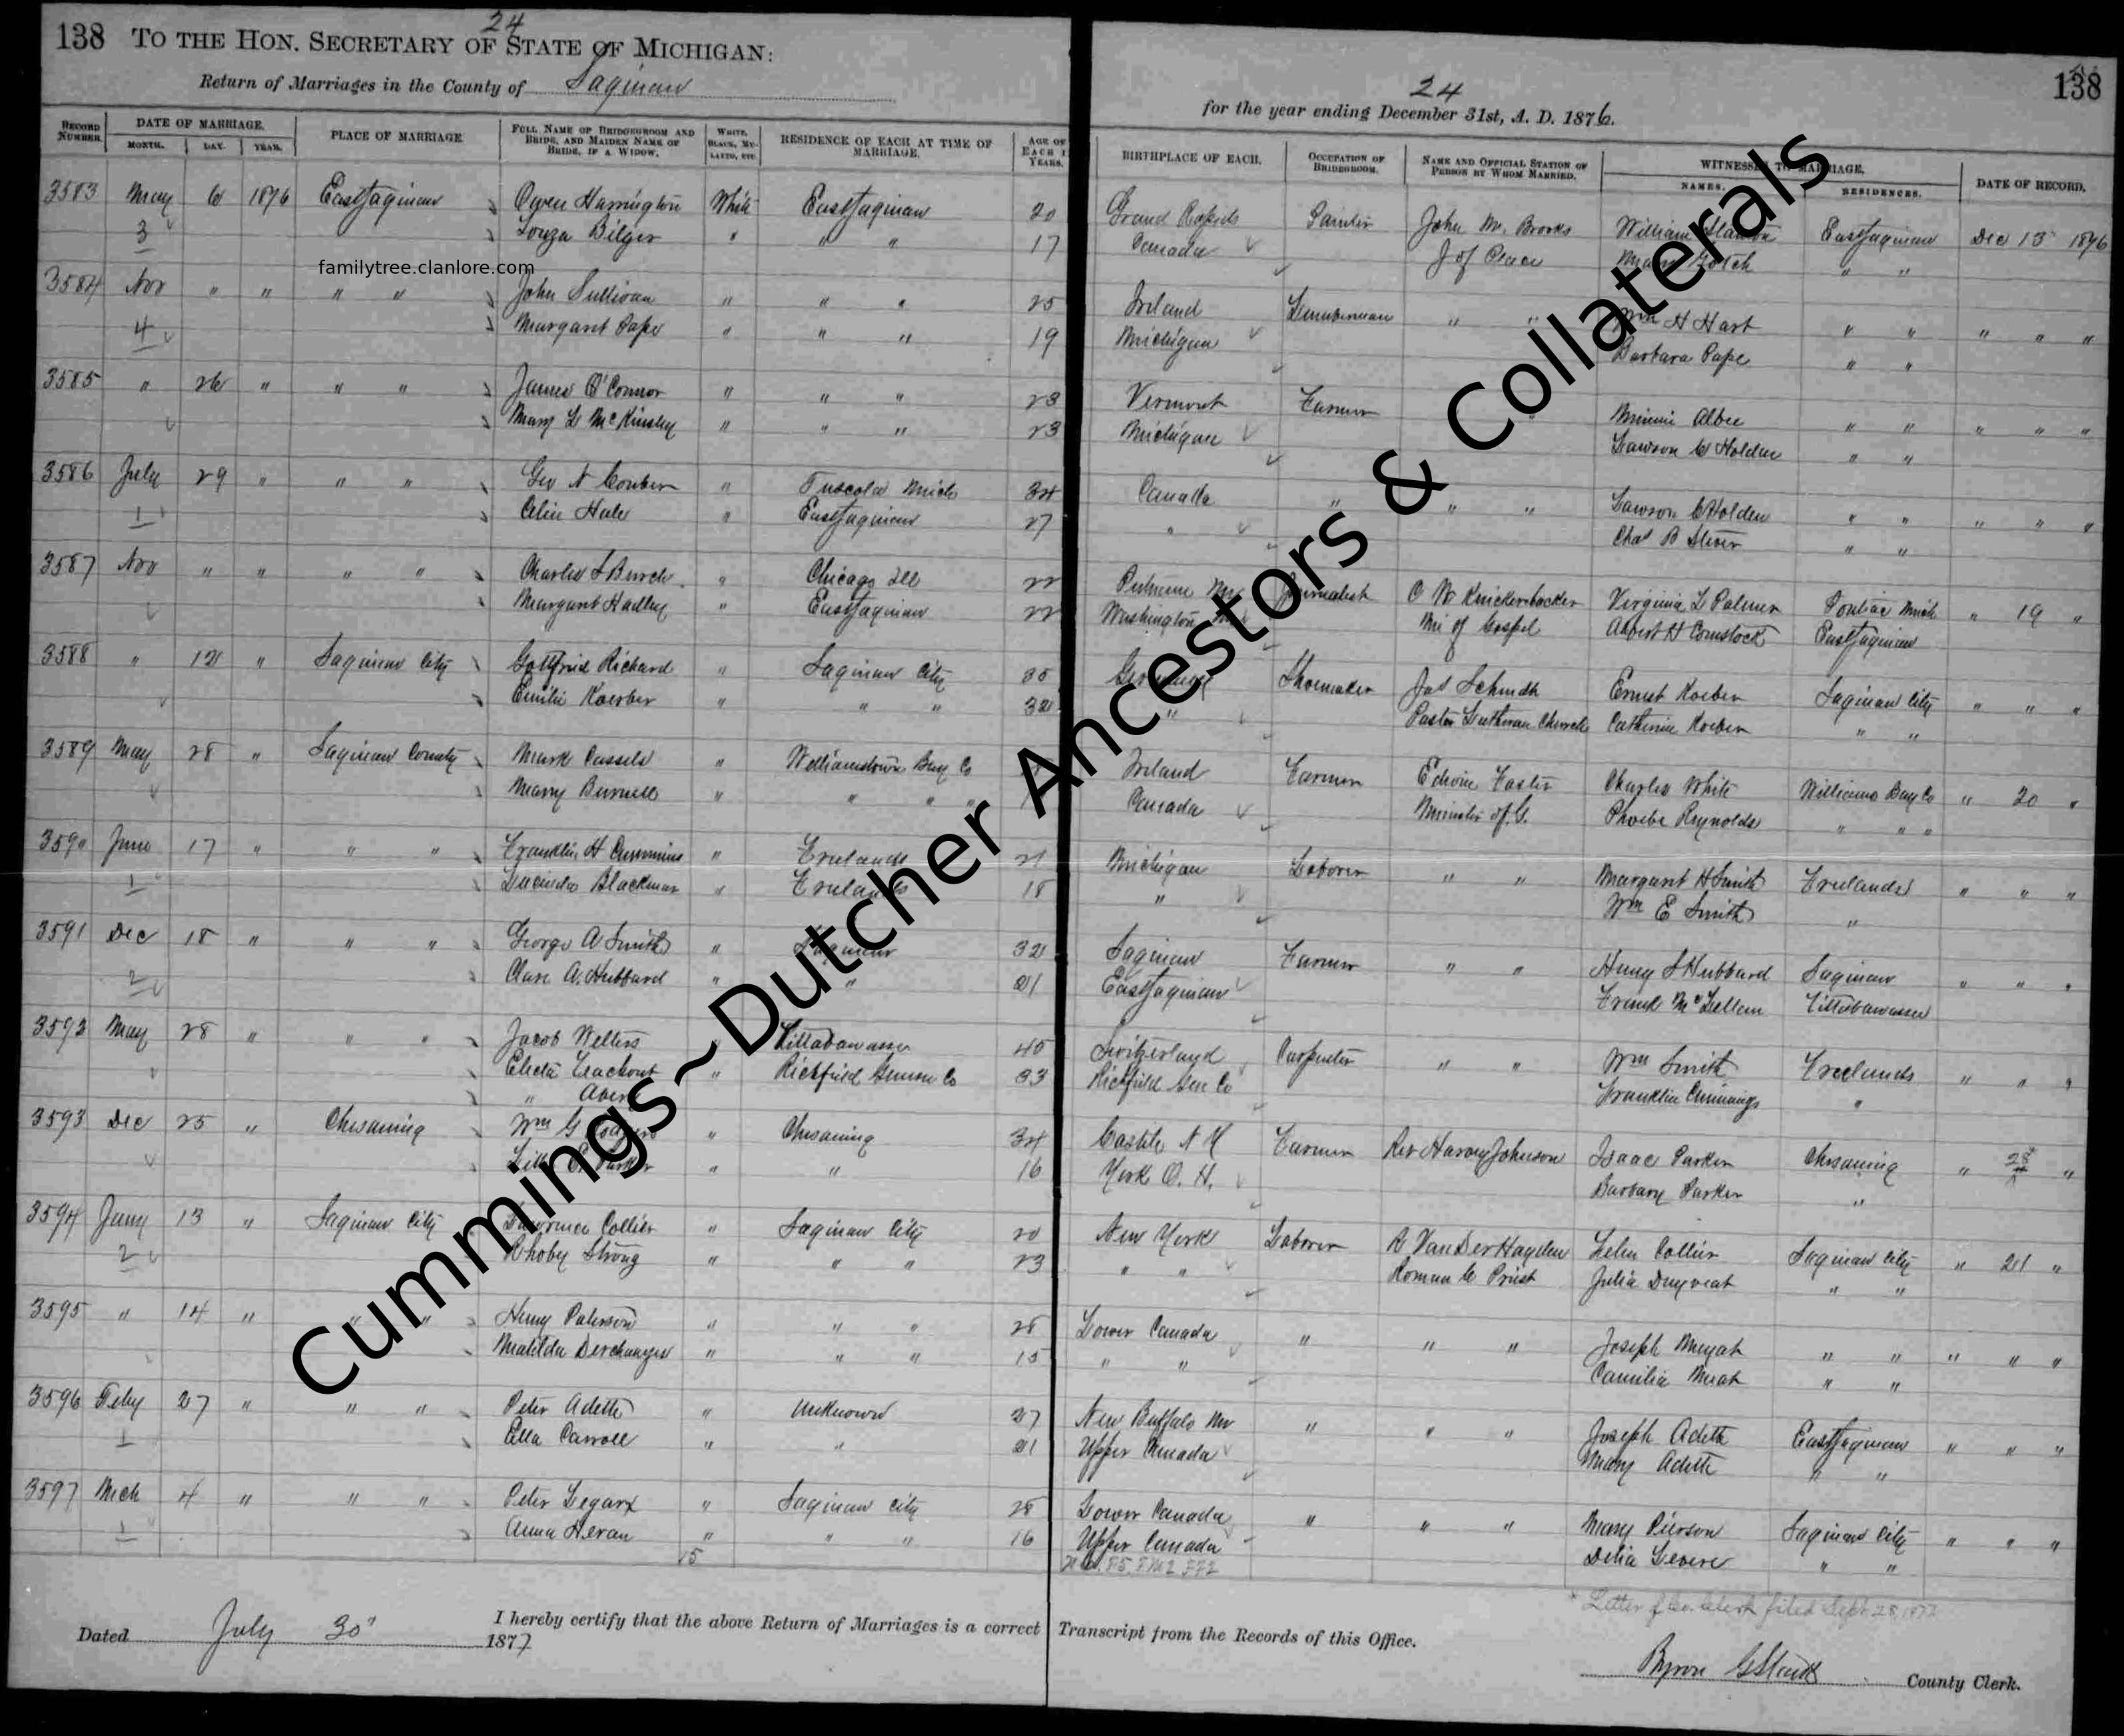 138 TO THE HON. SECRETARY OF STATE OF MICHIGAN:
24
Return of Marriages in the County of Saginaw
24
for the year ending December 31st, A. D. 1876.
138
RECORD NUMBER. DATE OF MARRIAGE. MONTH. DAY. YEAR. PLACE OF MARRIAGE. FULL NAME OF BRIDEGROOM AND BRIDE, AND MAIDEN NAME OF BRIDE, IF A WIDOW. WHITE, BLACK, MULATTO, ETC. RESIDENCE OF EACH AT TIME OF MARRIAGE. AGE OF EACH IN YEARS. BIRTHPLACE OF EACH. OCCUPATION OF BRIDEGROOM. NAME AND OFFICIAL STATION OF PERSON BY WHOM MARRIED. WITNESSES TO MARRIAGE. NAMES. RESIDENCES. DATE OF RECORD.
3583 May 6 1876 East Saginaw Owen Harrington White East Saginaw 20 Grand Rapids Painter John M. Brooks William East Saginaw Dec 13 1876
3 Louza Bilger " " " 17 Canada J of Peace " "
familytree.clanlore.com
3584 Nov " " " " John Sullivan " " " 25 Ireland Lumberman " " Wm H Hart " " " " "
4 Margaret Pape " " " 19 Michigan Barbara Pape " "
3585 " 26 " " " James O'Connor " " " 23 Vermont Farmer " Minnie Albee " " " " "
Mary L McKinsley " " " 23 Michigan Lawson C Holden " "
3586 July 29 " " " Geo N " Tuscola Mich 34 Canada " " " Lawson C Holden " " " " "
1 Celia Hale " East Saginaw 27 " Chas B " "
3587 Nov " " " " Charles S Burch " Chicago Ill 22 Journalist C W Knickerbocker Virginia L Palmer Pontiac Mich " 19 "
Margaret Hadley " East Saginaw 22 Washington Mi of Gospel Albert H Comstock East Saginaw
3588 " 12 " Saginaw City Gottfried Richard " Saginaw City 35 Germany Shoemaker Jos Schmidt Ernst Koeber Saginaw City " " "
Emilie Koerber " " " 32 " Pastor Lutheran Church Catherine Koeber " "
3589 May 28 " Saginaw County Mark Cassels " Williamstown Bay Co Ireland Farmer Edwin Foster Charles White Williams Bay Co " 20 "
Mary Burnell " " " " Canada Minister of G. Phoebe Reynolds " " "
3590 June 17 " " " Franklin H Cummins " Freelands 21 Michigan Laborer " " Margaret H Smith Freelands " " "
1 Lucinda Blackman " Freelands 18 " Wm E Smith "
3591 Dec 18 " " " George A Smith " Saginaw 32 Saginaw Farmer " " Henry S Hubbard Saginaw " " "
2 Clara A. Hubbard " " 21 East Saginaw Frank McLellan Tittabawassee
3592 May 28 " " " Jacob Welters " Tittabawassee 40 Switzerland Carpenter " " Wm Smith Freelands " " "
Electa " Richfield Genesee Co 33 Richfield Gen Co Franklin Cummings "
"
3593 Dec 25 " Chesaning Wm G " Chesaning 34 Castile N Y Farmer Rev Harvey Johnson Isaac Parker Chesaning " 28 "
Parker " " 16 York O. H. Barbary Parker "
3594 Jany 13 " Saginaw City Lawrence Collier " Saginaw City 20 New York Laborer R VanDerHayden Helen Collier Saginaw City " 21 "
2 Rhoby Strong " " " 23 " " Roman C Priest Julia "
3595 " 14 " " " Henry Paterson " " " 28 Lower Canada " " " Joseph " " " " "
Matilda " " " 15 " " Camilia " "
3596 Feby 27 " " " Peter Adette " Unknown 27 New Buffalo " " " Joseph Adette East Saginaw " " "
1 Ella Carroll " " 21 Upper Canada Mary Adette " "
3597 Mch 4 " " " Peter Legarx " Saginaw City 28 Lower Canada " " " Mary Pierson Saginaw City " " "
1 Anna Heran " " " 16 Upper Canada Delia " "
15
Letter of Co. Clerk filed Sept 28, 1877
Dated July 30" 1877 I hereby certify that the above Return of Marriages is a correct Transcript from the Records of this Office.
Byron County Clerk.
Cummings~Dutcher Ancestors & Collaterals